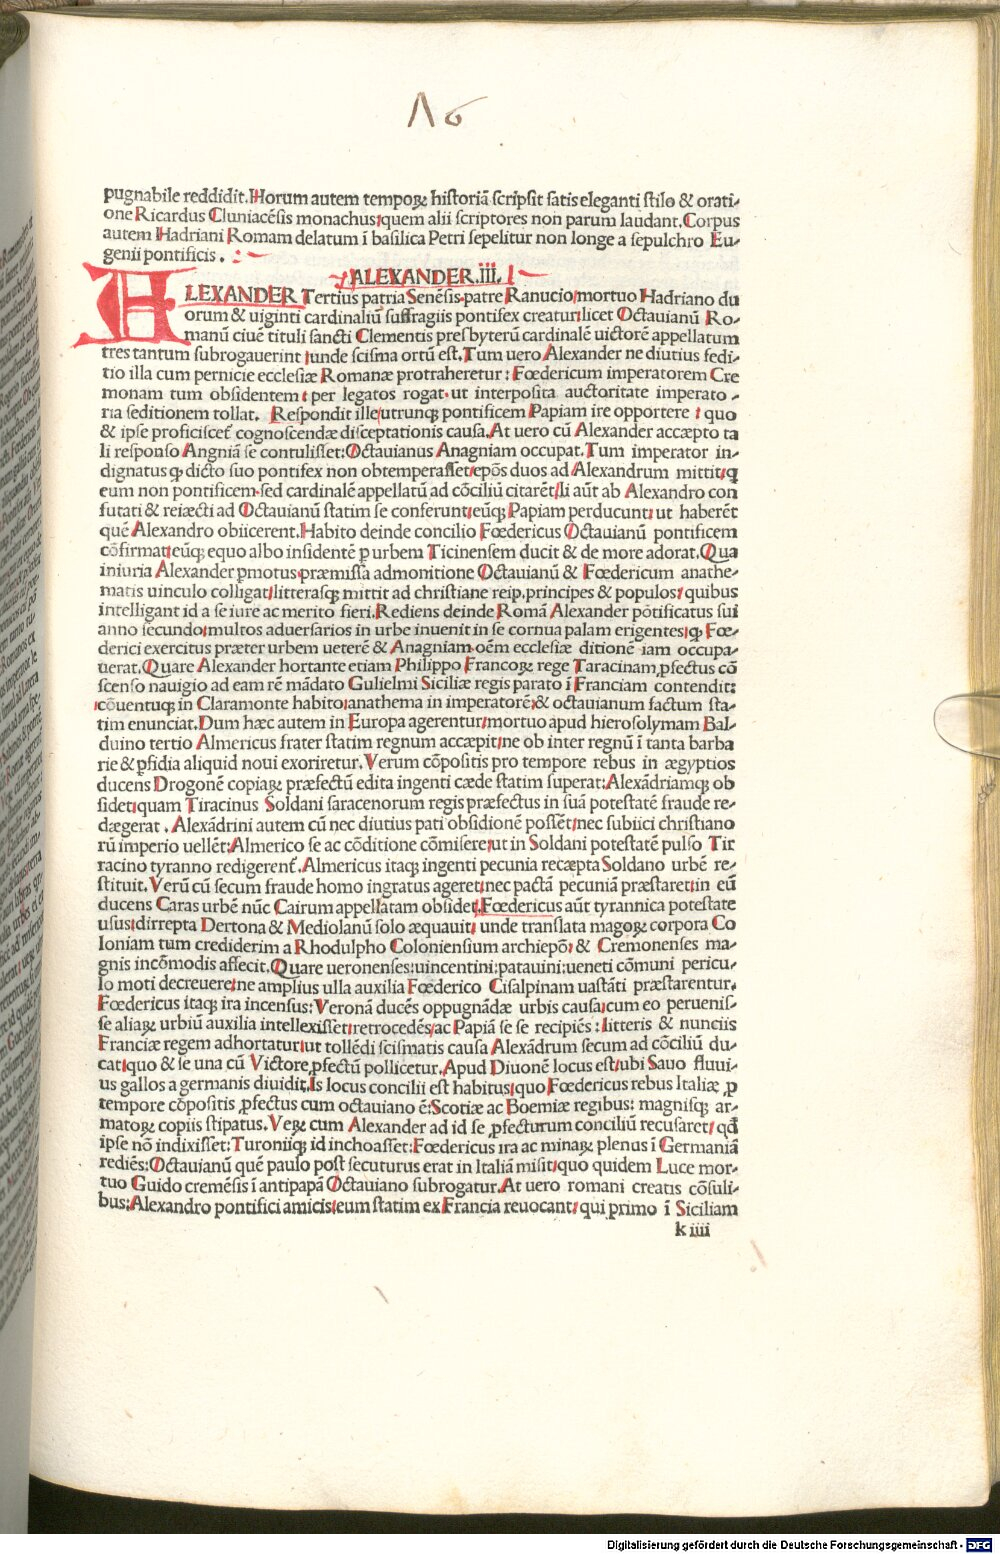 16
pugnabile reddidit. Horum autem tempoꝝ historiā scripsit satis eleganti stilo & orati-
one Ricardus Cluniacēsis monachus quem alii scriptores non parum laudant. Corpus
autem Hadriani Romam delatum ī basilica Petri sepelitur non longe a sepulchro Eu-
genii pontificis.
ALEXANDER.III.
ALEXANDER Tertius patria Senēsis patre Ranucio mortuo Hadriano du
orum & uiginti cardinaliū suffragiis pontifex creatur: licet Octauianū Ro-
manū ciuē tituli sancti Clementis presbyterū cardinalē uictorē appellatum
tres tantum subrogauerint: unde scisma ortū est. Tum uero Alexander ne diutius sedi-
tio illa cum pernicie ecclesiæ Romanæ protraheretur: Fœdericum imperatorem Cre
monam tum obsidentem per legatos rogat ut interposita auctoritate imperato-
ria seditionem tollat. Respondit ille utrunqꝫ pontificem Papiam ire opportere: quo
& ipse proficisceť cognoscendæ disceptationis causa. At uero cū Alexander accæpto ta
li responso Angniā se contulisset: Octauianus Anagniam occupat. Tum imperator in-
dignatus ꝙ dicto suo pontifex non obtemperasset: epōs duos ad Alexandrum mittit: q
eum non pontificem sed cardinalē appellatū ad cōciliū citarēt. Ii aūt ab Alexandro con
futati & reiæcti ad Octauianū statim se conferunt: eūqꝫ Papiam perducunt: ut haberēt
quē Alexandro obiicerent. Habito deinde concilio Fœdericus Octauianū pontificem
cōfirmat: eūqꝫ equo albo insidentē ꝑ urbem Ticinensem ducit & de more adorat. Qua
iniuria Alexander ꝑmotus præmissa admonitione Octauianū & Fœdericum anathe-
matis uinculo colligat: litterasqꝫ mittit ad christianæ reip. principes & populos: quibus
intelligant id a se iure ac merito fieri. Rediens deinde Romā Alexander pōtificatus sui
anno secundo: multos aduersarios in urbe inuenit in se cornua palam erigentes: ꝙ Fœ-
derici exercitus præter urbem ueterē & Anagniam oēm ecclesiæ ditionē iam occupa-
uerat. Quare Alexander hortante etiam Philippo Francoꝝ rege Taracinam ꝓfectus cō
scenso nauigio ad eam rē mādato Gulielmi Siciliæ regis parato ī Franciam contendit:
cōuentuqꝫ in Claramonte habito: anathema in imperatorē & octauianum factum sta-
tim enunciat. Dum hæc autem in Europa agerentur: mortuo apud hierosolymam Bal-
duino tertio Almericus frater statim regnum accæpit: ne ob inter regnū ī tanta barba
rie & ꝑfidia aliquid noui exoriretur. Verum cōpositis pro tempore rebus in ægyptios
ducens Drogonē copiaꝝ præfectū edita ingenti cæde statim superat: Alexādriamqꝫ ob
sidet: quam Tiracinus Soldani saracenorum regis præfectus in suā potestatē fraude re-
dægerat. Alexādrini autem cū nec diutius pati obsidionē possēt: nec subiici christiano
rū imperio uellēt: Almerico se ac cōditione cōmisere: ut in Soldani potestatē pulso Tir
racino tyranno redigerenť. Almericus itaqꝫ ingenti pecunia recæpta Soldano urbē re-
stituit. Verū cū secum fraude homo ingratus ageret: nec pactā pecuniā præstaret: in eū
ducens Caras urbē nūc Cairum appellatam obsidet. Fœdericus aūt tyrannica potestate
usus: dirrepta Dertona & Mediolanū solo æquauit: unde translata magoꝝ corpora Co
loniam tum crediderim a Rhodulpho Coloniensium archiepō: & Cremonenses ma-
gnis incōmodis affecit. Quare ueronenses: uincentini: patauini: ueneti cōmuni pericu-
lo moti decreuere: ne amplius ulla auxilia Fœderico Cisalpinam uastāti præstarentur.
Fœdericus itaqꝫ ira incensus: Veronā ducēs oppugnādæ urbis causa: cum eo peruenis-
se aliaꝝ urbiū auxilia intellexisset: retrocedēs: ac Papiā se se recipiēs: litteris & nunciis
Franciæ regem adhortatur: ut tollēdi scismatis causa Alexādrum secum ad cōciliū du-
cat: quo & se una cū Victore ꝓfectū pollicetur. Apud Diuonē locus est: ubi Sauo fluui-
us gallos a germanis diuidit. Is locus concilii est habitus: quo Fœdericus rebus Italiæ ꝓ
tempore cōpositis ꝓfectus cum octauiano ē: Scotiæ ac Boemiæ regibus: magnisqꝫ ar-
matoꝝ copiis stipatus. Veꝝ cum Alexander ad id se ꝓfecturum conciliū recusaret: qđ
ipse nō indixisset: Turoniiqꝫ id inchoasset: Fœdericus ira ac minaꝝ plenus ī Germaniā
rediēs: Octauianū quē paulo post secuturus erat in Italiā misit: quo quidem Luce mor-
tuo Guido cremēsis ī antipapā Octauiano subrogatur. At uero romani creatis cōsuli-
bus: Alexandro pontifici amicis: eum statim ex Francia reuocant: qui primo ī Siciliam
k iiii
Digitalisierung gefördert durch die Deutsche Forschungsgemeinschaft - DFG